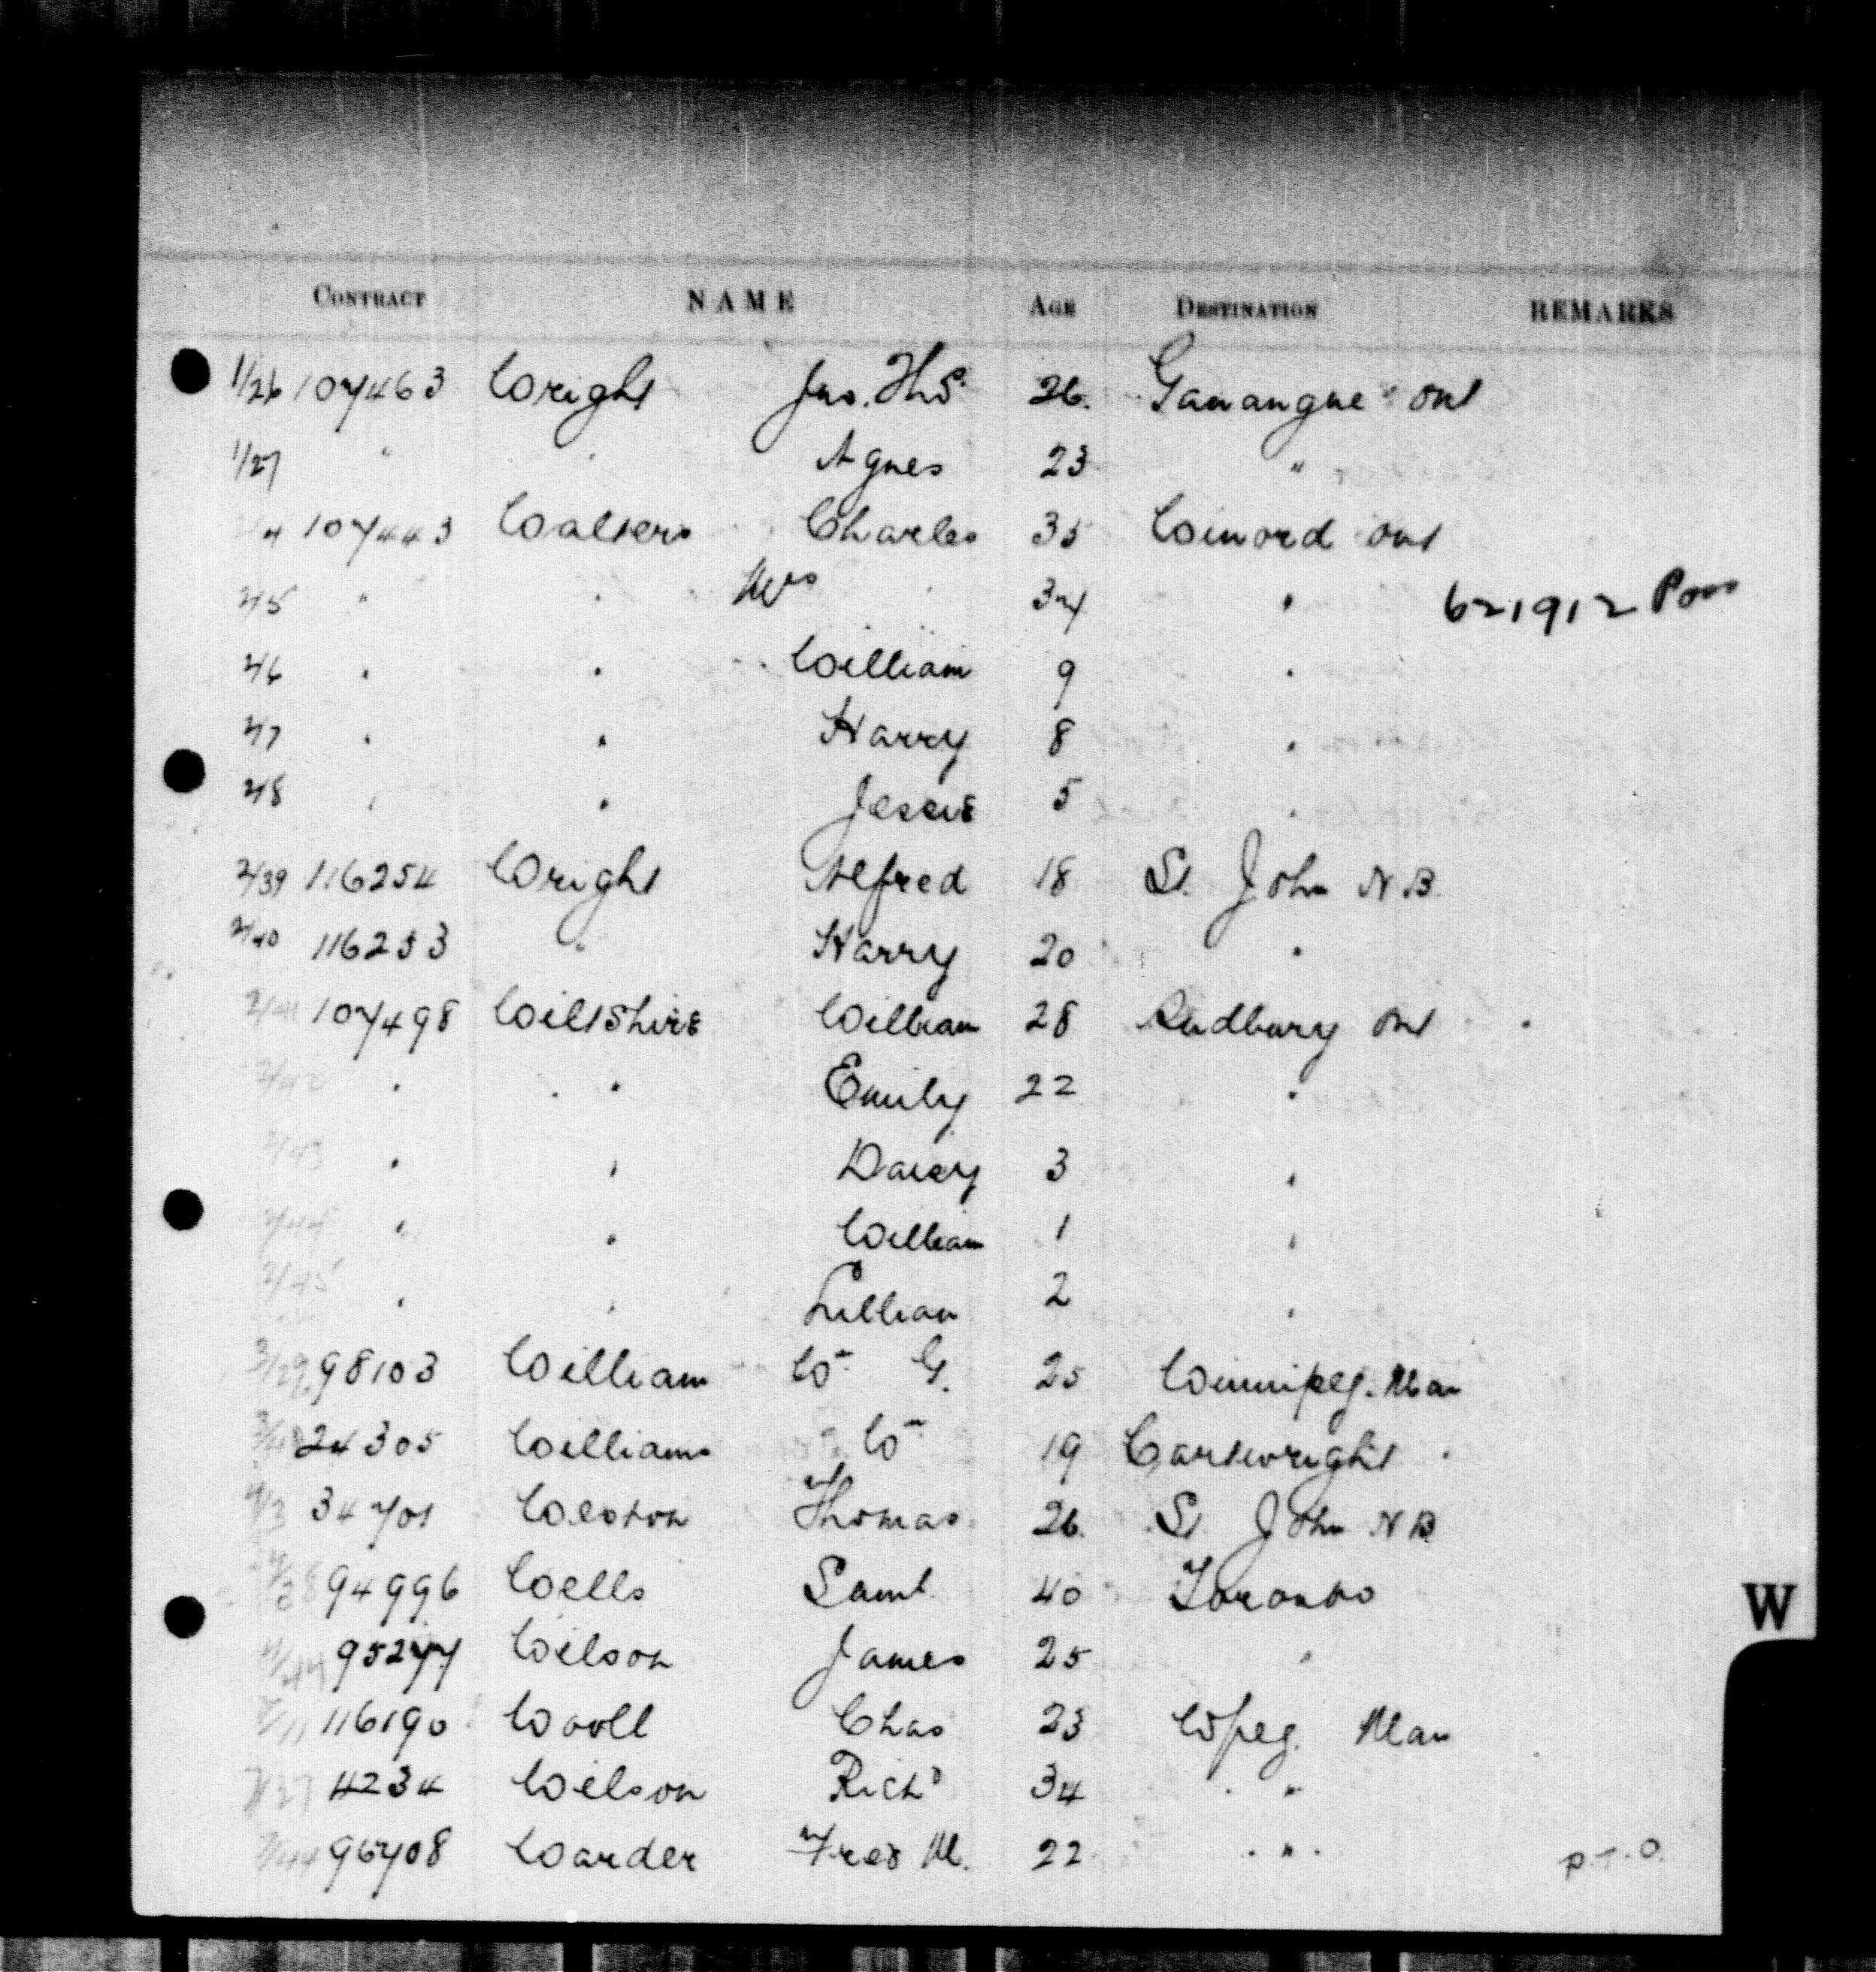 CONTRACT NAME AGE DESTINATION REMARKS
1/26 107463 Wright Jno. Thos. 26. Gananque Ont
1/27 " " Agnes 23 "
107443 Walters Charles 35 Winord Ont
2/5 " " Mrs 34 " 621912 Pass
2/6 " " William 9 "
2/7 " " Harry 8 "
2/8 " " Jessie 5 "
2/39 116254 Wright Alfred 18 St. John N.B.
2/40 116253 " Harry 20 "
2/41 107498 Wiltshire William 28 Sudbury Ont
" " Emily 22 "
2/43 " " Daisy 3 "
2/44 " " William 1 "
2/45 " " Lillian 2 "
3/29 98103 William Wm G. 25 Winnipeg. Man
24305 Williams Wm 19 Cartwright "
4/3 34701 Weston Thomas 26. St. John N.B.
94996 Wells Saml 40 Toronto
95277 Wilson James 25 "
116190 Wooll Chas 23 Wpeg. Man
7/37 4234 Wilson Richd 34 " "
7/44 96708 Warder Fred M. 22 . " .
P.T.O.
W